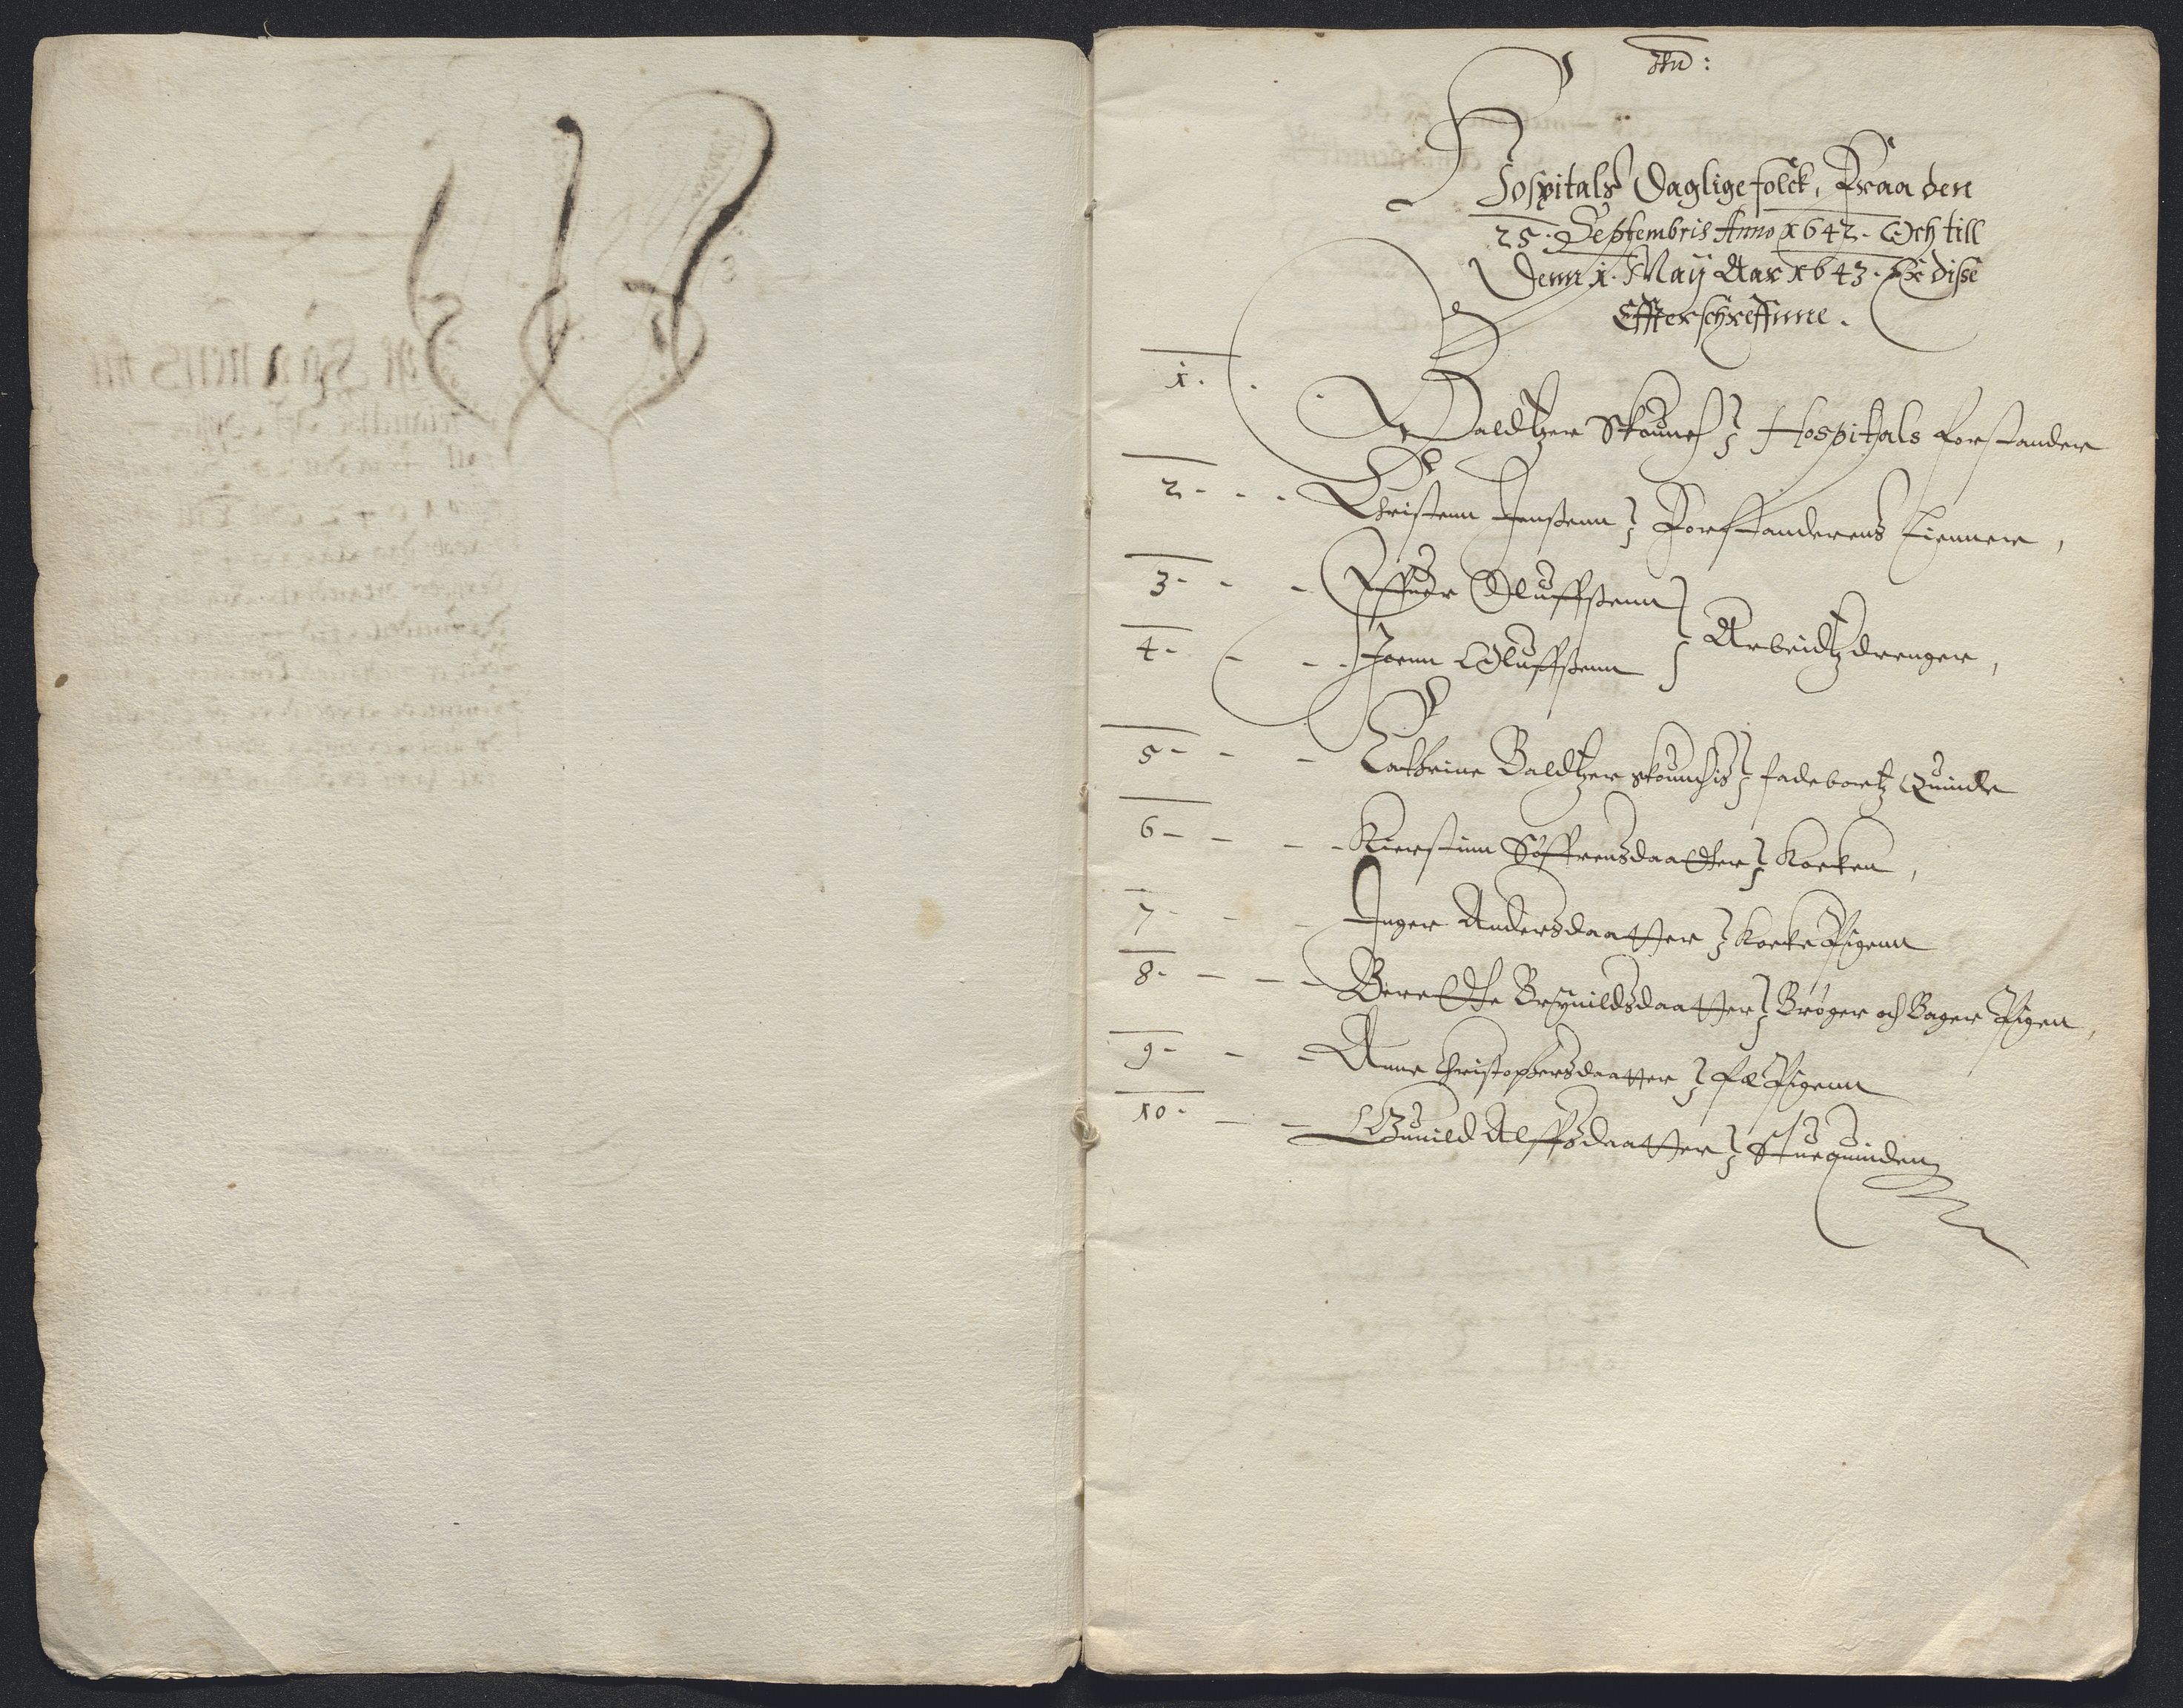 Hospitals Daglige folck, Fraa den
25. Septembris Anno 1642. Och till
Denn 1. Maij Aar 1643. Er disse
Effterschreffnne.
1. Baldtzer Skounch Hospitals forstander
2 - - - Christenn Jenssenn Forstanderens tienner,
3 - - - Effuer Oluffssenn
4 - - - Joenn Oluffssenn Arbeidtzdrenger,
5 - - - Cathrine Baldtzer skounchis fadeboertz Quinde
6 - - - Kierstinn Søffrensdaatther Kocken,
7 - - - Inger Andersdaatter Kocke Pigenn
8 - - - Berethe Brynildsdaatter Brøger och Bager Pigen,
9 - - - Anne Christophersdaatter fæ Pigenn
10 - - - Gunild Alffsdaatter Stuequinden